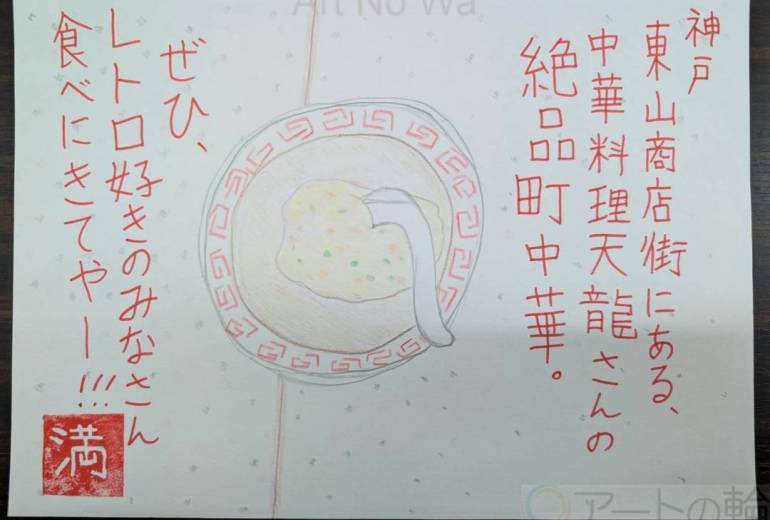 神戸
東山商店街にある、
中華料理天龍さんの
絶品町中華。
ぜひ、
レトロ好きのみなさん
食べにきてやー!!!
満
Art No Wa
アートの輪